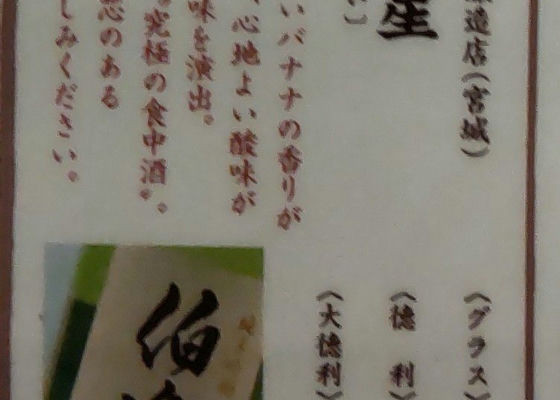 造店(宮城)
星
いバナナの香りが
、心地よい酸味が
味を演出。
。究極の食中酒"。
恋のある
しみください。
〈グラス〉
〈徳利〉
〈大徳利〉
伯